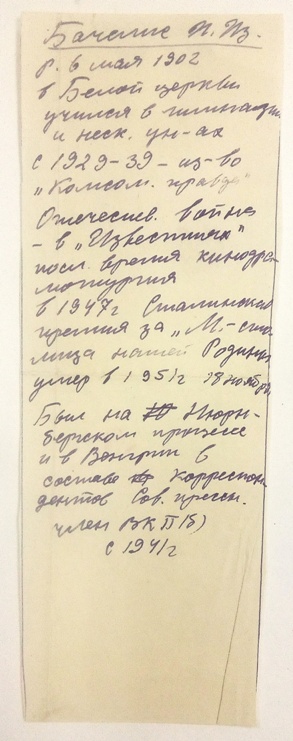 Бачелис И. Из.
р. 6 мая 1902
в Белой церкви
учился в гимназии
и неск. ун-ах
с 1929-39 - из-во
„Комсом. правда"
Отечествен. война
- в „Известиях"
посл. время кинодра
матургия
в 1947г Сталинская
премия за „М.- сто
лица нашей Родины
умер в 1951г 18 ноября
Был на Нюрн-
бергском процессе
и в Венгрии в
составе корреспон
дентов Сов. прессы.
член ВКП(б)
с 1941г